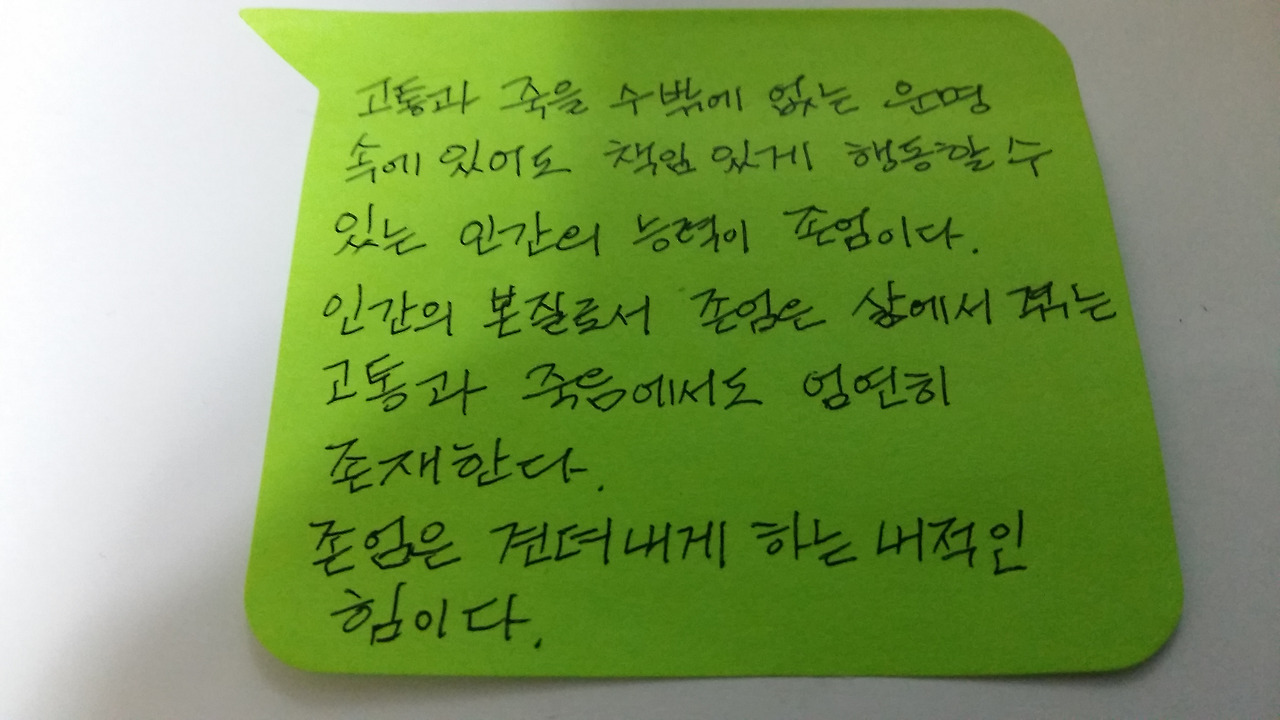 고통과 죽을 수밖에 없는 운명
속에 있어도 책임 있게 행동할 수
있는 인간의 능력이 존엄이다.
인간의 본질로서 존엄은 삶에서 겪는
고통과 죽음에서도 엄연히
존재한다.
존엄은 견뎌내게 하는 내적인
힘이다.